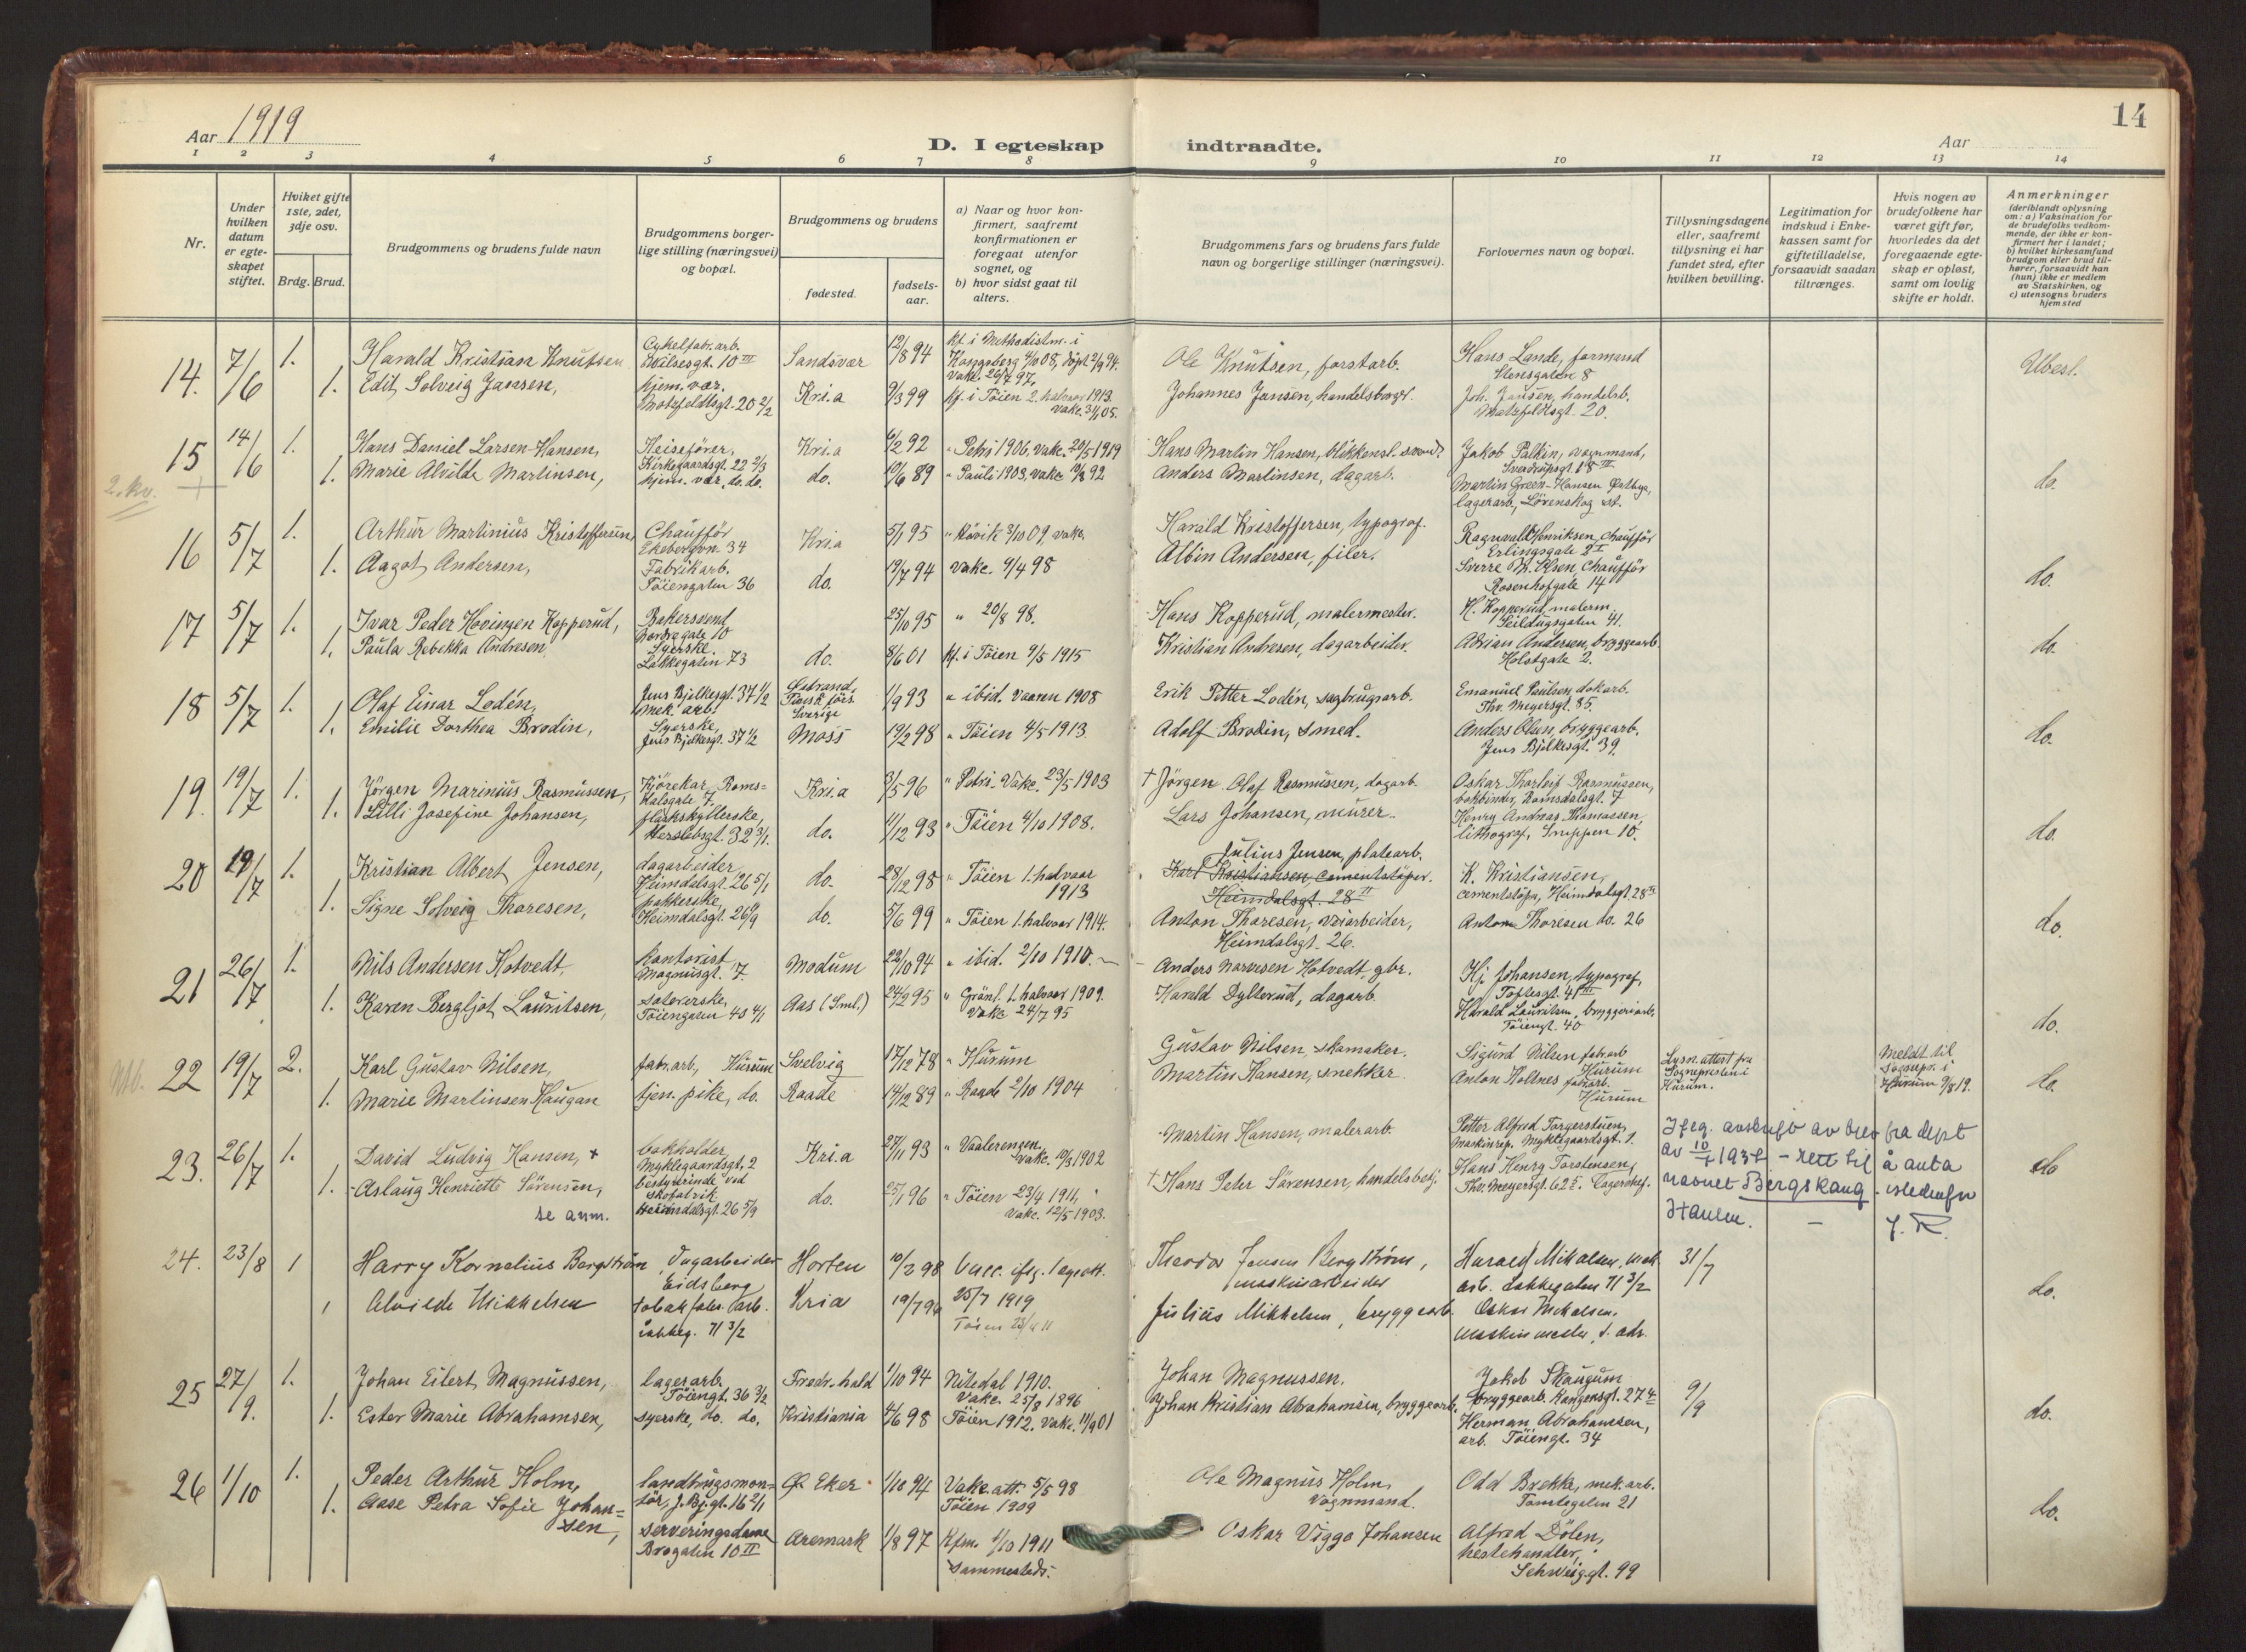 14
Aar 1919
D. I egteskap indtraadte.
Aar
1 2 3 4 5 6 7 8 9 10 11 12 13 14
Nr.
Under hvilken datum er egteskapet stiftet.
Hvilket gifte 1ste, 2det, 3dje osv.
Brdg. Brud.
Brudgommens og brudens fulde navn
Brudgommens borgerlige stilling (næringsvei) og bopæl.
Brudgommens og brudens
fødested.
fødselsaar.
a) Naar og hvor konfirmert, saafremt konfirmationen er foregaat utenfor sognet, og
b) hvor sidst gaat til alters.
Brudgommens fars og brudens fars fulde navn og borgerlige stillinger (næringsvei).
Forlovernes navn og bopæl.
Tillysningsdagene eller, saafremt tillysning ei har fundet sted, efter hvilken bevilling.
Legitimation for indskud i Enkekassen samt for giftetilladelse, forsaavidt saadan tiltrænges.
Hvis nogen av brudefolkene har været gift før, hvorledes da det foregaaende egteskap er opløst, samt om lovlig skifte er holdt.
Anmerkninger
(deriblandt oplysning om: a) Vaksination for de brudefolks vedkommende, der ikke er konfirmert her i landet; b) hvilket kirkesamfund brudgom eller brud tilhører, forsaavidt han (hun) ikke er medlem av Statskirken, og c) utensogns bruders hjemsted
14. 7/6 1. Harald Kristian Knutsen Cykelfabr.arb. Eivilesgt. 10 III Sandsvær 12/8 94 Kf. i Methodistm. i Kongsberg 4/10 08, døpt 2/9 94. Vakc. 26/7 97, Ole Knutsen, forstarb. Hans Lande, formand Stensgaten 8 Ubest.
1. Edit Solveig Jansen, hjem. vær. Motzfeldtsgt. 20 2/2 Kri.a 9/3 99 Kf. i Tøien 2. halvaar 1913. Vakc. 3/1 05. Johannes Jansen, handelsborger. Joh. Jansen, handelsb. Motzfeldtsgt. 20.
15 14/6 1. Hans Daniel Larsen-Hansen, Heisefører, Kirkegaardsgt. 22 2/3 Kri.a 6/2 92 " Petri 1906, vakc. 20/5 1919 Hans Martin Hansen, blikkensl. svend. Jakob Palkin, vognmand, Sverdrupsgt. 18 III do.
2. kv.
1. Marie Alvilde Martinsen, hjem. vær. do. do. do. 10/6 89 " Pauli 1903, vakc. 10/8 92 Anders Martinsen, dagarb. Martin Green-Hansen Østbye, lagerarb., Lørenskog st.
16 5/7 1. Arthur Martinius Kristoffersen, Chauffør Ekebergvn. 34 Kri.a 5/1 95 " Røvik 3/10 09, vakc. Harald Kristoffersen, typograf. Ragnvald Henriksen, chauffør Erlingsgate 2 I do.
1. Aagot Andersen, Fabrikarb. Tøiengaten 36 do. 19/7 94 Vakc. 9/4 98 Albin Andersen, filer. Sverre M. Olsen, chauffør Rosenhofgate 14
17 5/7 1. Ivar Peder Hovingen Kopperud, Bakersvend Nordregate 10 25/10 95 " 20/8 98. Hans Kopperud, malermester. H. Kopperud, malerm. Seildugsgaten 41. do.
1. Paula Rebekka Andresen Syerske. Lakkegaten 73 do. 8/6 01 Kf. i Tøien 9/5 1915 Kristian Andresen, dagarbeider. Adrian Andersen, bryggearb. Holstgate 2.
18 5/7 1. Olaf Einar Lodén, Jens Bjelkesgt. 37 1/2 Mek. arb. Østrand, Sverige 1/9 93 " ibid. Vaaren 1908 Erik Petter Lodén, sagbrugsarb. Emanuel Paulsen, dokarb. Thv. Meyersgt. 85. do.
1. Emilie Dorthea Brodin, Syerske, Jens Bjelkesgt. 37 1/2 Moss 19/2 98 " Tøien 4/5 1913 Adolf Brodin, smed. Anders Olsen, bryggearb. Jens Bjelkesgt. 39.
19. 19/7 1. Jørgen Marinius Rasmussen, Kjørekar, Romsdalsgate 7. Kri.a 3/5 96 " Petri. Vakc. 23/5 1903 † Jørgen Olaf Rasmussen, dagarb. Oskar Thorleif Rasmussen, bokbinder, Romsdalsgt. 7 do.
1. Lilli Josefine Johansen, flaskskyllerske, Herslebsgt. 32 3/1. do. 11/12 93 " Tøien 4/10 1908. Lars Johansen, murer. Henry Andreas Thomassen, lithograf, Snippen 10.
20 19/7 1. Kristian Albert Jensen, dagarbeider, Heimdalsgt. 26 5/1 do. 28/12 98 " Tøien 1. halvaar 1913 Julius Jensen, platearb. Karl Kristiansen, cementstøper. Heimdalsgt. 28 II K. Kristiansen, cementstøper, Heimdalsgt. 28 do.
1. Signe Solveig Thoresen, pakkerske, Heimdalsgt. 26 9/9 do. 5/6 99 " Tøien 1. halvaar 1914. Anton Thoresen, veiarbeider, Heimdalsgt. 26. Anton Thoresen do. 26
21 26/7 1. Nils Andersen Hotvedt. Kontorist Magnusgt. 7. Modum 22/10 94 " ibid. 2/10 1910. Anders Narvesen Hotvedt, gbr. Hj. Johansen, typograf, Toftesgt. 41 III do.
1. Karen Bergljot Lauritsen, Tøiengaten 40 4/1 Aas (Sml.) 24/2 95 " Grønl. 1. halvaar 1909. Vakc 24/7 95 Harald Dylterud, dagarb. Harald Lauritsen, bryggeriarb. Tøiengt. 40
22 19/7 2. Karl Gustav Nilsen, fabr.arb, Hurum Svelvig 17/12 78 " Hurum Gustav Nilsen, skomaker. Sigurd Nilsen fabr.arb Hurum Lysn. attest fra Sognepresten i Hurum. Meldt til Sognepr. i Hurum 9/8 19. do.
1. Marie Martinsen Haugan tjen. pike, do. Raade 14/12 89 " Raade 2/10 1904 Martin Hansen, snekker. Anton Holtnes fabr.arb. Hurum
23. 26/7 1. David Ludvig Hansen, + bokholder, Myklegaardsgt. 2 Kri.a 27/11 93 " Vaalerengen. Vakc. 10/3 1902 Martin Hansen, malerarb. Petter Alfred Torgerstuen, Maskinrep. Myklegaardsgt. 1. Ifølg. avskrift av brev fra dept av 10/7 1937 - rett til å anta navnet Bergskaug istedenfor Hansen. do
1. Aslaug Henriette Sørensen, se anm. bestyrerinde ved skofabrik. Heimdalsgt. 26 5/9 do. 25/1 96 " Tøien 23/4 1911, Vakc. 12/5 1903. † Hans Peter Sørensen, handelsbetj. Hans Henry Torstensen, Thv. Meyersgt. 62 Lagersbetj.
24. 23/8 1 Harry Kornelius Bergstrøm, Dagarbeider Eidsberg Horten 10/2 98 Vacc. ifølg. legeatt. 25/7 1919 Theodor Jensen Bergstrøm, maskinarbeider Harald Mikalsen, mek. arb. Lakkegaten 71 3/2 31/7 do.
1 Alvilde Mikkelsen tobakfabr.arb. Lakkeg. 71 3/2 Kria 19/7 98 Tøien 23/4 11 Julius Mikkelsen, bryggearb. Oskar Mikalsen, maskinmester, s. adr.
25 27/9. 1. Johan Eilert Magnussen, lagerarb. Tøiengt. 36 3/2 Fredr.hald 1/10 94 Nitedal 1910. Vakc. 25/8 1896 Johan Magnussen. Jakob Skaugum bryggearb. Kangensgt. 27 9/9 do.
1. Ester Marie Abrahamsen, syerske, do. do. Kristiania 4/6 98 Tøien 1912. Vakc. 11/9 01 Johan Kristian Abrahamsen, bryggearb. Herman Abrahamsen, arb. Tøiengt. 34
26 1/10 1. Peder Arthur Holm, landbrugsmontør, J. Bj.gt. 16 2/1 Ø. Eker 1/10 94 Vakc. att. 5/5 98 Tøien 1909 Ole Magnus Holm, Vognmand. Odd Brekke, mek.arb. Tomtegaten 21 do.
1. Aase Petra Sofie Johansen, serveringsdame Brogaten 10 II Aremark 1/8 97 Kfm. 1/10 1911 sammesteds. Oskar Viggo Johansen Alfred Dølen, hestehandler, Schweigg.gt. 99